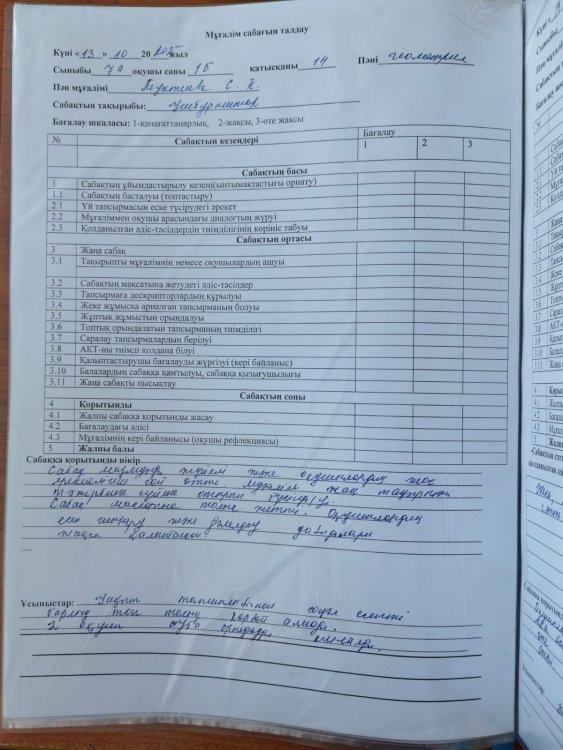 Мұғалім сабағын талдау
Күні «13» 10 2025 жыл
Сыныбы 7 оқушы саны 15 қатысқаны 14 Пәні геометрия
Пән мұғалімі С. К.
Сабақтың тақырыбы: Үшбұрыштар
Бағалау шкаласы: 1-қанағаттанарлық, 2-жақсы, 3-өте жақсы
№ Сабақтың кезеңдері Бағалау
1 2 3
Сабақтың басы
1 Сабақтың ұйымдастырылу кезеңі(ынтымақтастығы орнату)
1.1 Сабақтың басталуы (топтастыру)
2.1 Үй тапсырмасын еске түсірудегі әрекет
2.2 Мұғаліммен оқушы арасындағы диалогтың жүруі
2.3 Қолданылған әдіс-тәсілдердің тиімділігінің көрініс табуы
Сабақтың ортасы
3 Жаңа сабақ
3.1 Тақырыпты мұғалімнің немесе оқушылардың ашуы
3.2 Сабақтың мақсатына жетудегі әдіс-тәсілдер
3.3 Тапсырмаға дескрипторлардың құрылуы
3.4 Жеке жұмысқа арналған тапсырманың болуы
3.5 Жұптық жұмыстың орындалуы
3.6 Топтық орындалатын тапсырманың тиімділігі
3.7 Саралау тапсырмалардың берілуі
3.8 АКТ-ны тиімді қолдана білуі
3.9 Қалыптастырушы бағалауды жүргізуі (кері байланыс)
3.10 Балалардың сабаққа қамтылуы, сабаққа қызығушылығы
3.11 Жаңа сабақты пысықтау
Сабақтың соңы
4 Қорытынды
4.1 Жалпы сабаққа қорытынды жасау
4.2 Бағалаудағы әдісі
4.3 Мұғалімнің кері байланысы (оқушы рефлекциясы)
5 Жалпы балы
Сабаққа қорытынды пікір
Сабақ мазмұнды және оқушылардың жас
сай өтті. Мұғалім жаңа тақырыпты
түсіндірді.
Сабақ мақсатына толық жетті. Оқушылардың
есеп шығару және дағдылары
жақсы қалыптасқан
Ұсыныстар: Уақыт соңғы есепті
барлық топ толық алмады.
2 оқушы